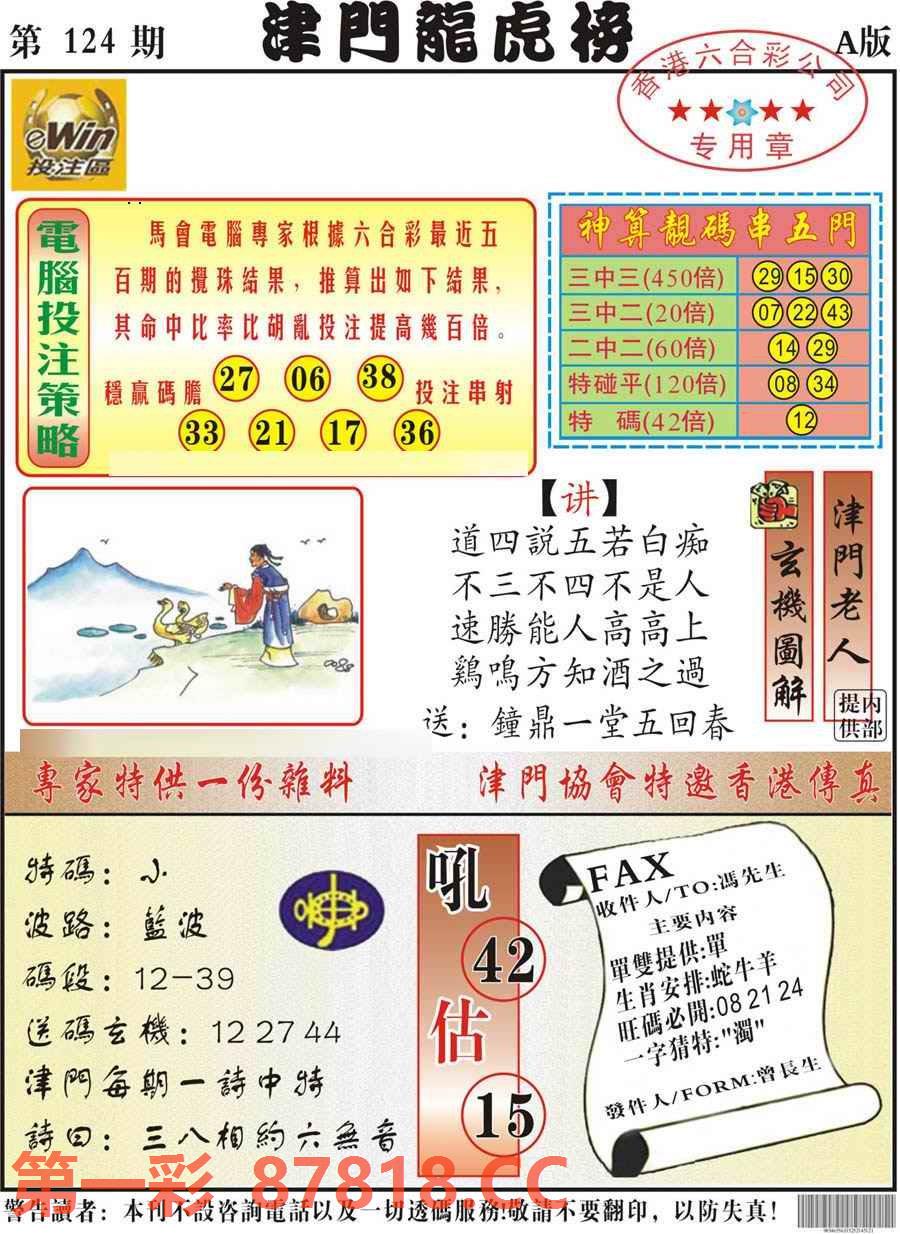 第 124 期
津門龍虎榜
A版
香港六合彩公司
专用章
eWin
投注區
電腦投注策略
馬會電腦專家根據六合彩最近五
百期的攪珠結果，推算出如下結果，
其命中比率比胡亂投注提高幾百倍。
穩贏碼膽 27 06 38 投注串射
33 21 17 36
神算靚碼串五門
三中三(450倍) 29 15 30
三中二(20倍) 07 22 43
二中二(60倍) 14 29
特碰平(120倍) 08 34
特 碼(42倍) 12
【讲】
道四説五若白痴
不三不四不是人
速勝能人高高上
鷄鳴方知酒之過
送：鐘鼎一堂五回春
玄機圖解
津門老人
内部提供
專家特供一份雜料
津門協會特邀香港傳真
特碼：小
波路：藍波
碼段：12-39
送碼玄機：12 27 44
津門每期一詩中特
詩曰：三八相約六無音
吼
42
估
15
FAX
收件人/TO:馮先生
主要内容
單雙提供:單
生肖安排:蛇牛羊
旺碼必開:08 21 24
一字猜特:"濁"
發件人/FORM:曾長生
第一彩 87818.CC
警告讀者：本刊不設咨詢電話以及一切透碼服務!敬請不要翻印，以防失真!